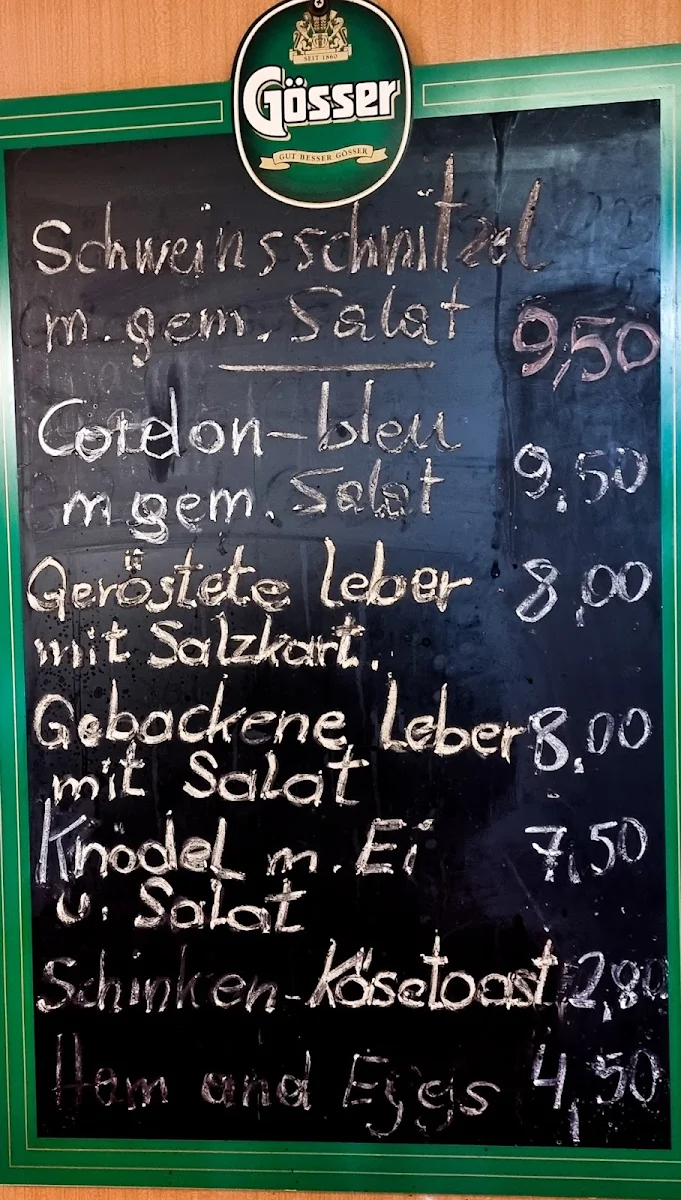 SEIT 1860
Gösser
GUT BESSER GÖSSER
Schweinsschnitzel
m. gem. Salat 9,50
Cordon-bleu
m gem. Salat 9,50
Geröstete Leber 8,00
mit Salzkart.
Gebackene Leber 8,00
mit Salat
Knödel m. Ei 7,50
u. Salat
Schinken-Käsetoast 2,80
Ham and Eggs 4,50